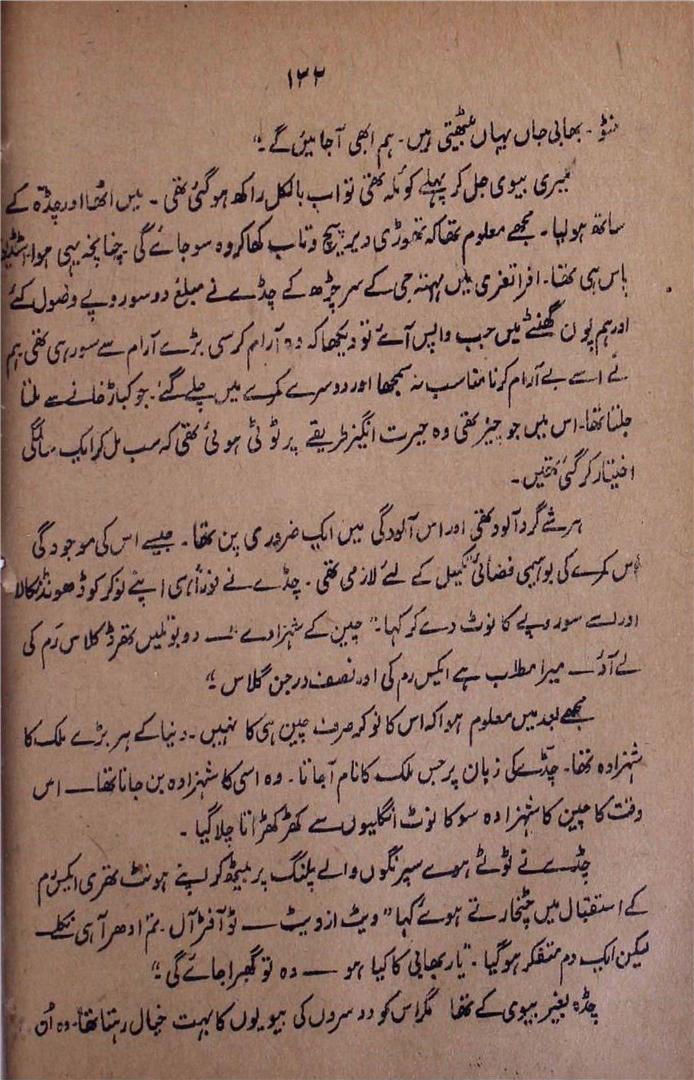 ۱۳۲
منٹو۔ بھابی جان یہاں بیٹھتی ہیں۔ ہم ابھی آجائیں گے۔“
میری بیوی جل کر پہلے کوئلہ تھی تو اب بالکل راکھ ہوگئی تھی۔ میں اٹھا اور چڈہ کے
ساتھ ہولیا۔ مجھے معلوم تھا کہ تھوڑی دیر پیچ وتاب کھا کر وہ سو جائے گی۔ چنانچہ یہی ہوا۔ اسٹڈیو
پاس ہی تھا۔ افراتفری میں مہتہ جی کے سر چڑھ کے چڈے نے مبلغ دو سو روپے وصول کئے
اور ہم پون گھنٹے میں جب واپس آئے تو دیکھا کہ وہ آرام کرسی بڑے آرام سے سورہی تھی ہم
نے اسے بے آرام کرنا مناسب نہ سمجھا اور دوسرے کمرے میں چلے گئے۔ جو کباڑ خانے سے ملتا
جلتا تھا۔ اس میں جو چیز تھی وہ حیرت انگیز طریقے پر ٹوٹی ہوئی تھی کہ سب مل کر ایک سالمگی
اختیار کر گئی تھیں۔
ہر شے گرد آلود تھی اور اس آلودگی میں ایک ضروری پن تھا۔ جیسے اس کی موجودگی
اس کمرے کی بوہیمی فضا کی تکمیل کے لئے لازمی تھی۔ چڈے نے فوراً ہی اپنے نوکر کو ڈھونڈ نکالا
اور اسے سو روپے کا نوٹ دے کر کہا۔ ”چین کے شہزادے — دو بوتلیں تھرڈ کلاس رَم کی
لے آؤ — میرا مطلب ہے ایکس رم کی اور نصف درجن گلاس۔“
مجھے بعد میں معلوم ہوا کہ اس کا نوکر صرف چین ہی کا نہیں۔ دنیا کے ہر بڑے ملک کا
شہزادہ تھا۔ چڈے کی زبان پر جس ملک کا نام آجاتا۔ وہ اسی کا شہزادہ بن جاتا تھا — اس
وقت کا چین کا شہزادہ سو کا نوٹ انگلیوں سے کھڑکھڑاتا چلا گیا۔
چڈے نے ٹوٹے ہوے سپرنگوں والے پلنگ پر بیٹھ کر اپنے ہونٹ تھری ایکس رم
کے استقبال میں چٹخارتے ہوے کہا ”ویٹ از ویٹ — ٹو آفٹر آل۔ تم ادھر آہی نکلے —
لیکن ایک دم متفکر ہوگیا۔ ”یار بھابی کا کیا ہو — وہ تو گھبرا جائے گی۔“
چڈہ بغیر بیوی کے تھا مگر اس کو دوسروں کی بیویوں کا بہت خیال رہتا تھا۔ وہ اُن